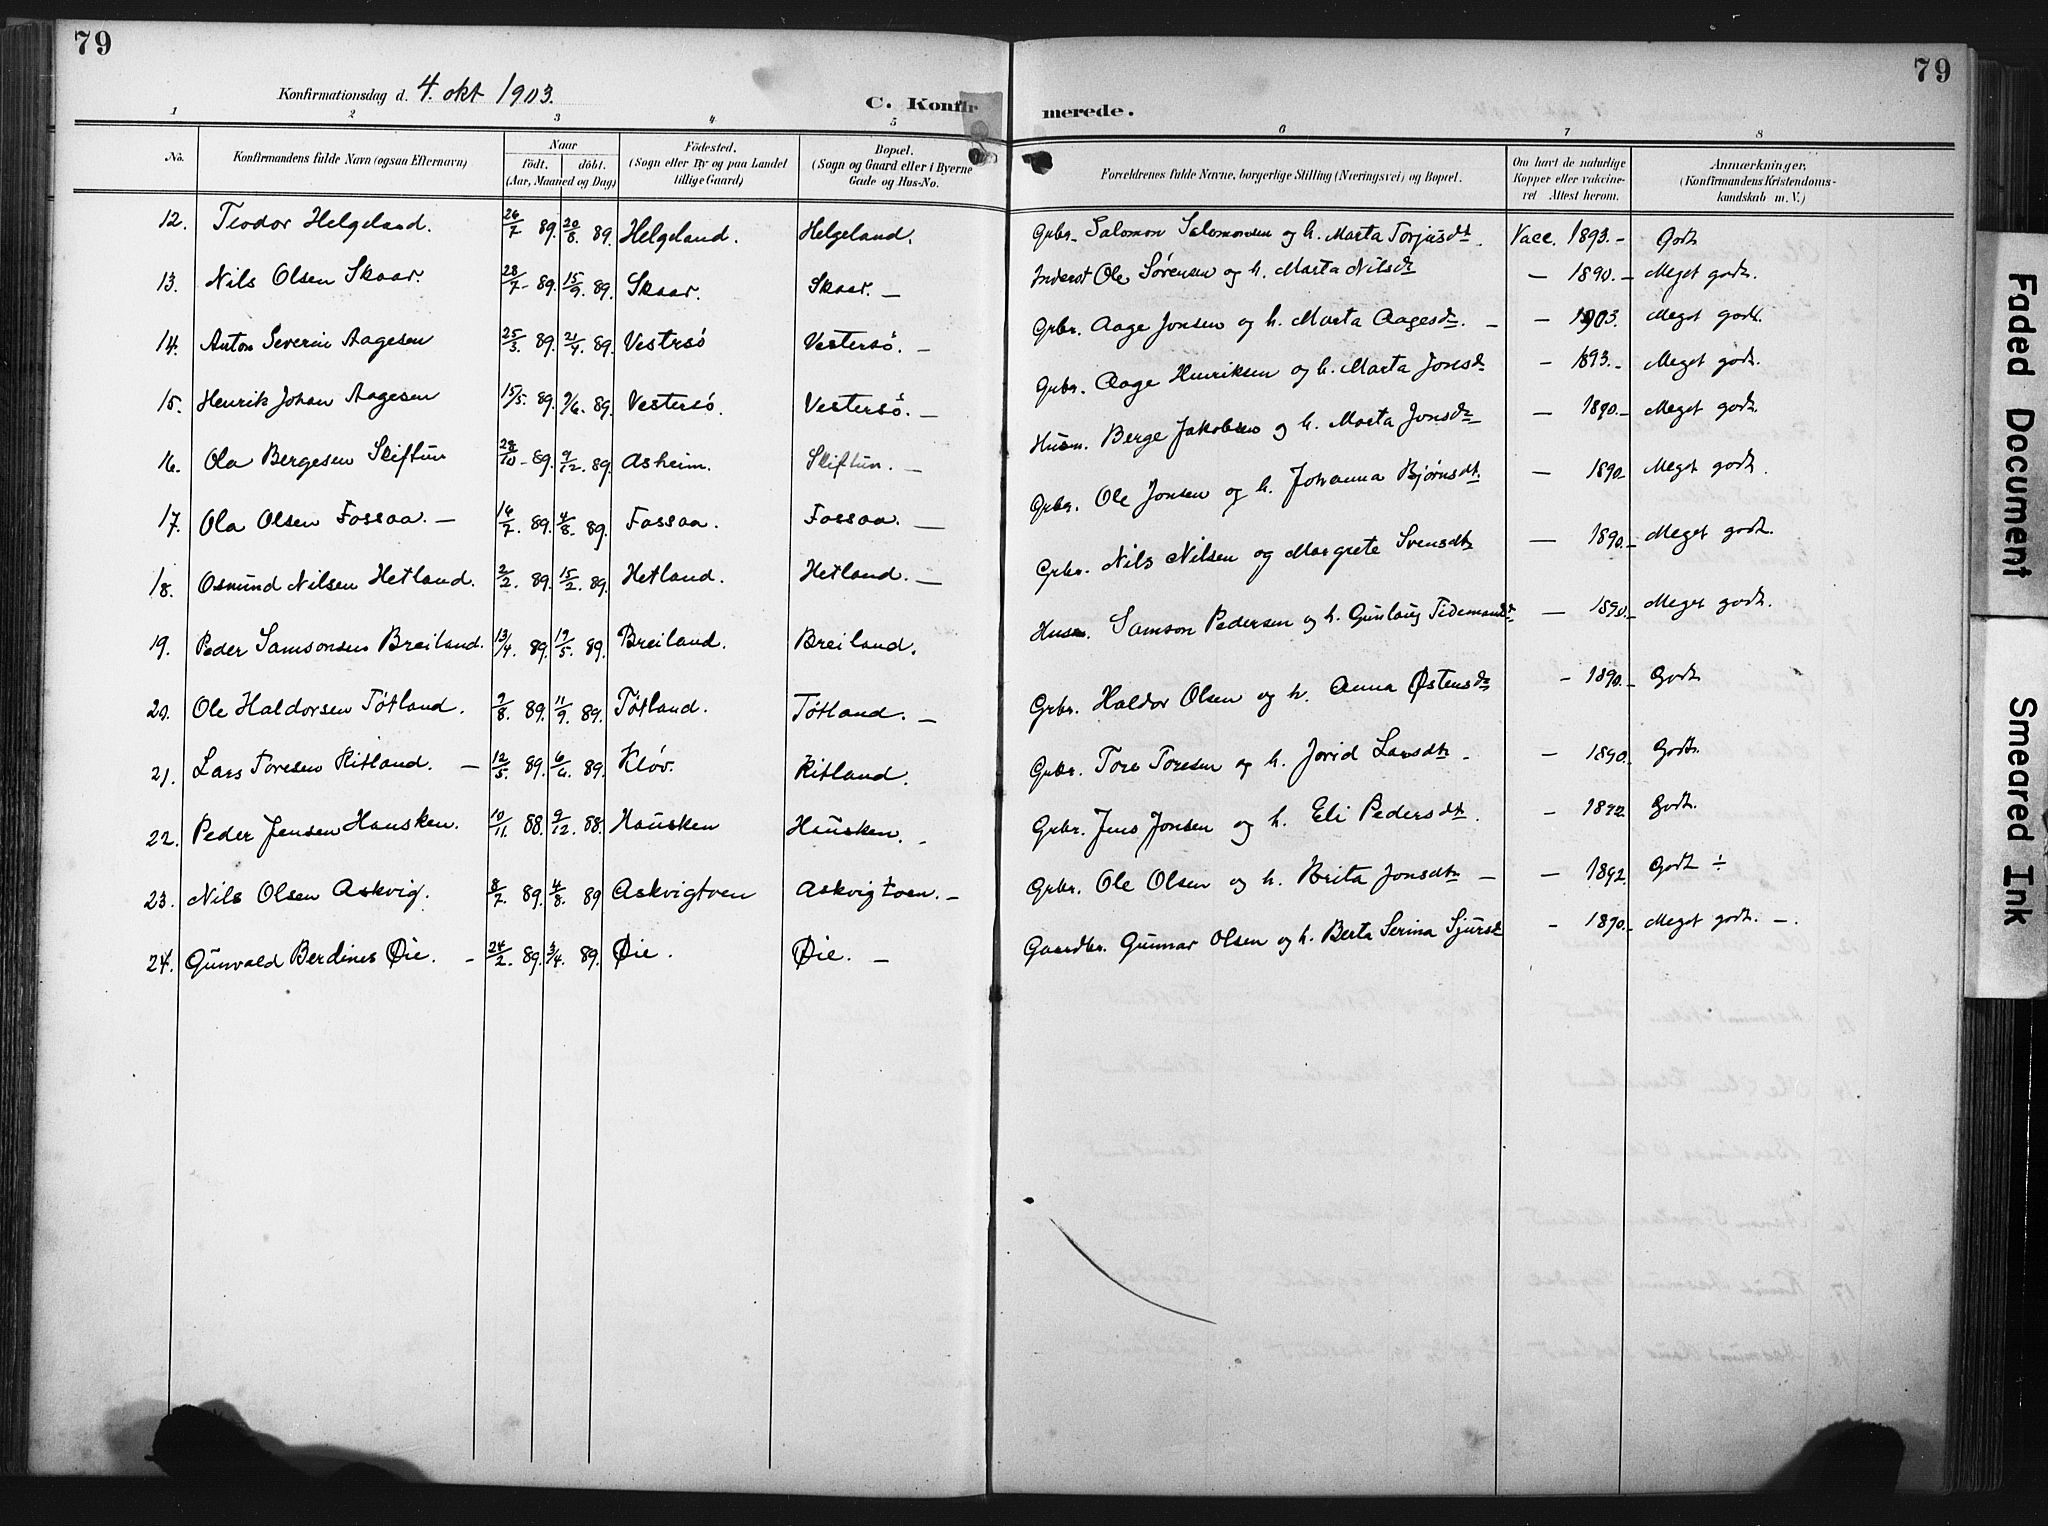 79
79
Konfirmationsdag d. 4. okt 1903.
C. Konfir merede.
1 2 3 4 5 6 7 8
No. Konfirmandens fulde Navn (ogsaa Efternavn) Naar födt. döbt. (Aar, Maaned og Dag) Födested. (Sogn eller By og paa Landet tillige Gaard) Bopæl. (Sogn og Gaard eller i Byerne Gade og Hus-No. Forældrenes fulde Navne, borgerlige Stilling (Næringsvei) og Bopæl. Om havt de naturlige Kopper eller vakcineret Attest herom. Anmærkninger, (Konfirmandens Kristendomskundskab m. V.)
12. Teodor Helgeland. 26/7 89. 20/8. 89. Helgeland. Helgeland. Grbr. Salomon Salomonsen og h. Marta Torjusdt. Vacc. 1893.- Godt
13. Nils Olsen Skaar. 28/7- 89. 15/9. 89. Skaar. Skaar. — Inderst Ole Sørensen og h. Marta Nilsdt — 1890.- Meget godt.
14. Anton Severin Aagesen 25/3. 89. 21/4. 89. Vestersö Vestersö. — Grbr. Aage Jonsen og h. Marta Aagesdt. — — 1903. Meget godt.
15. Henrik Johan Aagesen 15/5. 89. 9/6. 89. Vestersö. Vestersö. — Grbr. Aage Henriksen og h. Marta Jonsdt — 1893.- Meget godt.
16. Ola Bergesen Skiftun 28/10- 89. 9/12. 89. Asheim. Skiftun. — Husm. Berge Jakobsen og h. Marta Jonsdt — 1890.- Meget godt.
17. Ola Olsen Fossaa. — 16/7. 89. 4/8. 89. Fossaa. Fossaa. — Grbr. Ole Jonsen og h. Johanna Bjørnsdt. — 1890.- Meget godt.
18. Osmund Nilsen Hetland. 2/2. 89. 15/2. 89. Hetland. Hetland. — Grbr. Nils Nilsen og Margrete Svensdt — 1890.- Meget godt.
19. Peder Samsonsen Breiland. 13/4. 89. 19/5. 89. Breiland. Breiland. Husm. Samson Pedersen og h. Gunlaug Tidemandsdt — 1890.- Meget godt.
20. Ole Haldorsen Tøtland. 9/8. 89. 11/9. 89. Tøtland. Tøtland. — Grbr. Haldor Olsen og h. Anna Østensdt — 1890.- Godt
21. Lars Toresen Ritland. — 12/5. 89. 6/6. 89. Kløv. Ritland. Grbr. Tore Toresen og h. Jorid Larsdt. — 1890.- Godt.
22. Peder Jensen Hausken. 10/11. 88. 9/12. 88. Hausken Hausken. - Grbr. Jens Jonsen og h. Eli Pedersdt. — 1892. Godt.
23. Nils Olsen Askvig. 8/7. 89. 4/8. 89 Askvigtveen Askvigtveen. — Grbr. Ole Olsen og h. Brita Jonsdt — — 1892. Godt ÷
24. Gunvald Berdines Øie. - 24/2. 89. 3/4. 89. Øie. Øie. — Gaardbr. Gunnar Olsen og h. Berta Serina Sjursdt - 1890.- Meget godt. —.
Faded Document
Smeared Ink